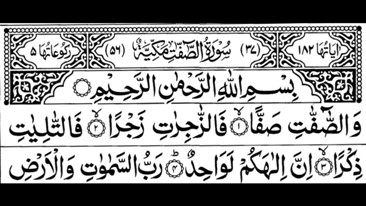 اٰیَاتُهَا ١٨٢ (٣٧) سُوْرَةُ الصّٰٓفّٰتِ مَكِّیَّةٌ (٥٦) رُكُوْعَاتُهَا ٥
بِسْمِ اللّٰهِ الرَّحْمٰنِ الرَّحِیْمِ
وَالصّٰٓفّٰتِ صَفًّا ١ فَالزّٰجِرٰتِ زَجْرًا ٢ فَالتّٰلِیٰتِ
ذِكْرًا ٣ اِنَّ اِلٰهَكُمْ لَوَاحِدٌ ٤ رَبُّ السَّمٰوٰتِ وَالْاَرْضِ